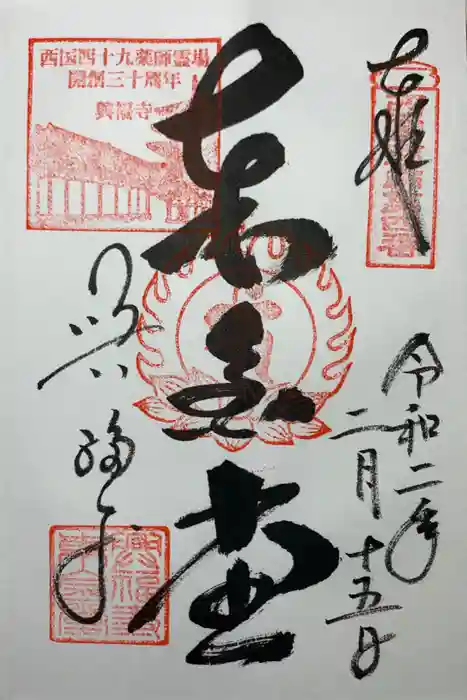 奉拝
令和二年
二月十五日
東金堂
西国四十九薬師霊場
開創三十周年
興福寺
興福寺